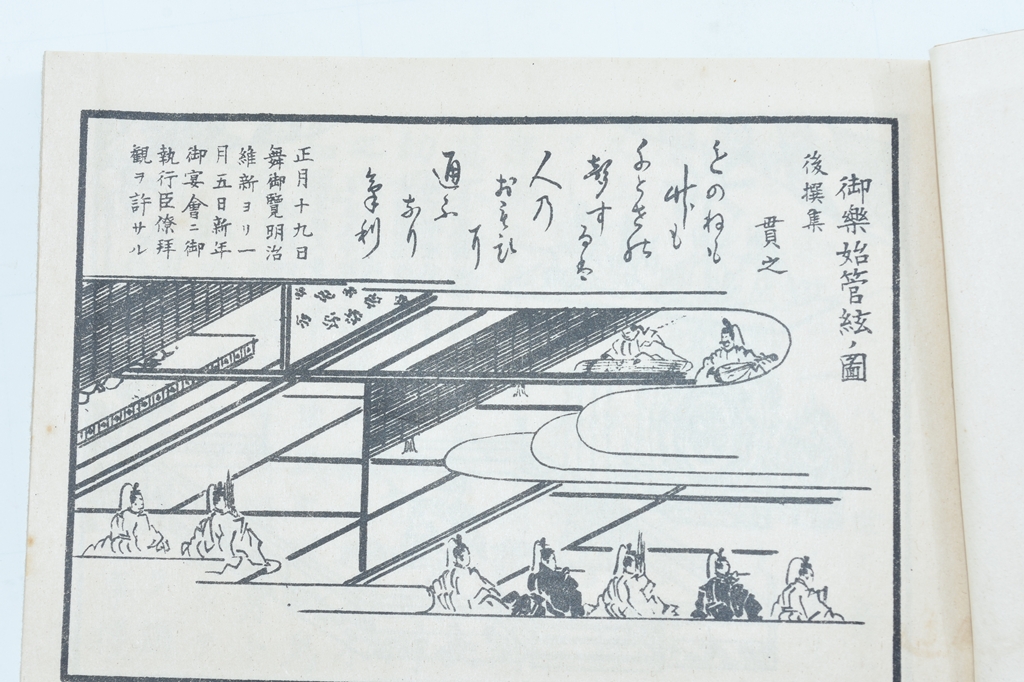 御樂始管絃ノ圖
後撰集
貫之
ことのねも
竹も
ちとせの
聲するは
人乃
おもひ
に
通ふ
なり
氣利
正月十九日
舞御覽明治
維新ヨリ一
月五日新年
御宴會ニ御
執行臣僚拜
観ヲ許サル